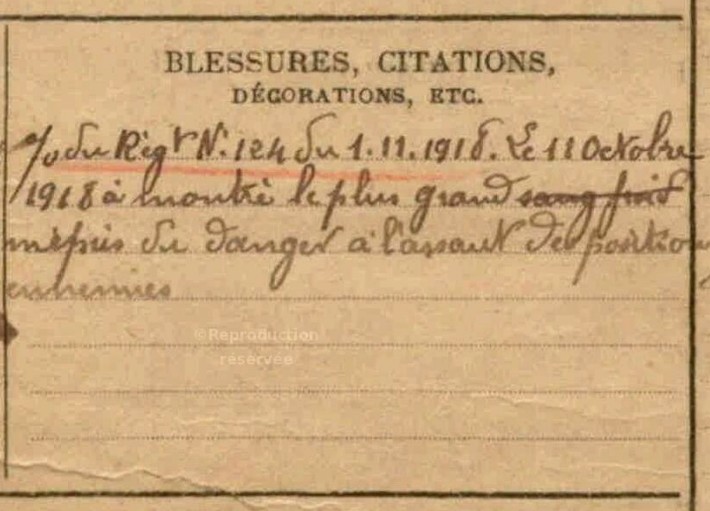 BLESSURES, CITATIONS,
DÉCORATIONS, ETC.
du Règt N. 124 du 1.11.1918. Le 11 Octobre
1918 à montré le plus grand sang froid
mépris du danger à l'assaut des positions
ennemies
©Reproduction
réservée